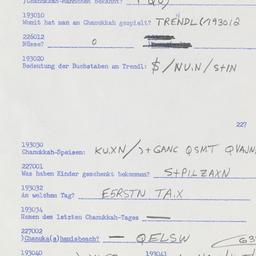 )Chanukkah-Männchen bekannt?
193010
Womit hat man an Chanukkah gespielt? TRËNDL(/193012
226012
Nüsse? 0
193020
Bedeutung der Buchstaben am Trendl: $/NU.N/S+IN
227
193030
Chanukkah-Speisen: KU.XN/)+GANC QSMT QVAJN
227001
Was haben Kinder geschenkt bekommen? S+PILZAXN
193032
An welchem Tag? E5RSTN TA.X
193034
Namen des letzten Chanukkah-Tages —
227002
)Chanuka(s)benischmench? — QELSW
193040 193041